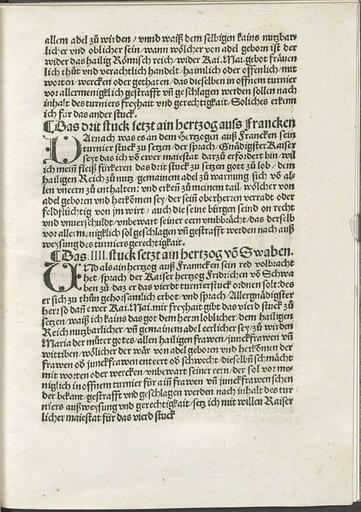 allem adel zů wirden / vnnd waiß hem selbigen kains nutzbar⸗
licher vnd oblicher sein / wann wölcher von adel geborn ist der
wider das hailig Römisch reich / wider Kai. Mai. gebot frauen
lich thůt vnd verachtlich handelt / haimlich oder offenlich / mit
worten / wercken oder gethaten / das dieselben in offnem turnier
vor allermeniglich gestrafft vñ geschlagen werden sollen nach
inhalt des turniers freyhait vnd gerechtigkait. Soliches erkenn
ich für das ander stuck.
⸿ Das drit stuck setzt ain hertzog auss Francken
DArnach was es an dem Hertzogen auß Francken sein
turnier stuck zů setzen / der sprach / Gnädigster Kaiser
seyt das ich vō ewer maiestat darzů erfordert bin / wil
ich mein fleiß fürkeren / das drit stuck zu setzen got zů lob / dem
hailigen Reich zů nutz / gemainem adel zů warnung sich vō al⸗
len vneern zů enthalten: vnd erken zů meinem tail / wölcher von
adel geboren vnd herkōmen sey / der sein oberherren verradt oder
feldflüchtig von jm wirt / auch die seine bürgen seind on recht
vnd vnuerschuldt / vnbewart seiner eern vmbbrächt / das derselb
vor allermeniglich sōl geschlagen vñ gestrafft werden nach auß
weysung des turniers gerechtigkait.
⸿ Das .IIII. stuck setzt ain hertzog vō Swaben.
VNd als ain hertzog auß Francken sein red volbracht
het / sprach der Kaiser hertzog Fridrichen vō Schwa
ben zů / daz er das vierdt turnierstuck ordnen solt: des
er sich zů thůn gehorsamlich erbot / vnd sprach / Allergnädigster
herr so dañ ewer Kai. Mai. mir freyhait gibt das vierd stuck zů
setzen / waiß ich kains das got dem herrn loblicher / dem hailigen
Reich nutzbarlicher / vñ gemainem adel eerlicher sey / zů wirden
Maria der můter gotes / allen hailigen frawen / junckfrawen vñ
wittiben / wölicher der wär von adel geboren vnd herkōmen der
frawen oder junckfrawen enteert oder schwecht / dieselbē schmächt
mit worten oder wercken / vnbewart seiner eern / der sol vor me⸗
niglich in offnem turnier für ain frawen vñ junckfrawenschen
der bekant / gestrafft vnd geschlagen werden nach inhalt des tur
niers außweysung vnd gerechtigkait / setz ich mit willen Kaiser
licher maiestat für das vierd stuck